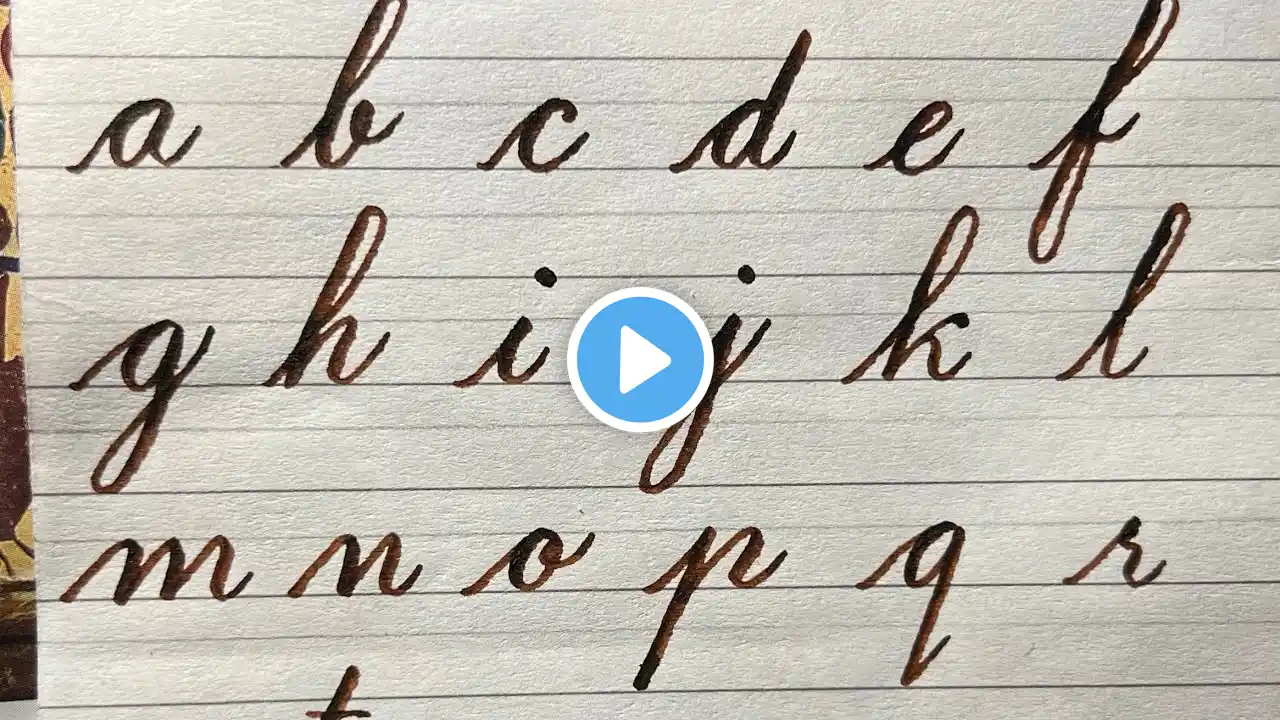 a b c d e f
g h i j k l
m n o p q r
t